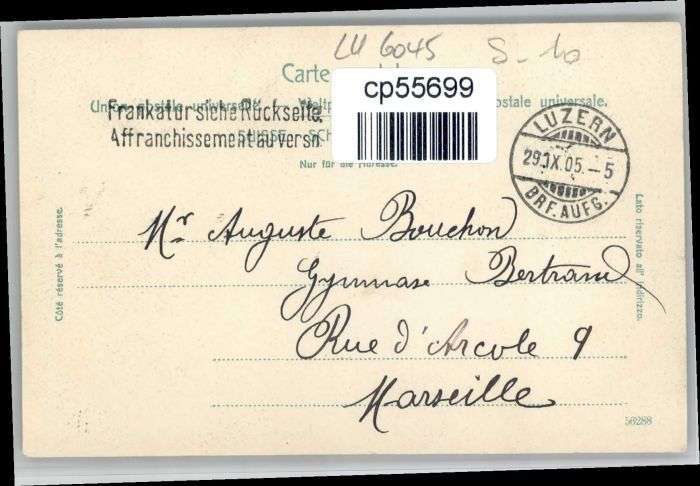 LU 6045 S-10
Carte
cp55699
Union postale universelle. — Weltp ostale universale.
Frankatur siehe Rückseite.
SUISSE. SCH
Affranchissement au versn
Nur für die Adresse.
LUZERN
29.IX.05.—5
BRF. AUFG.
Côté réservé à l'adresse.
Lato riservato all' indirizzo.
Mr Auguste Bouchon
Gymnase Bertrand
Rue d'Arcole 9
Marseille
56288